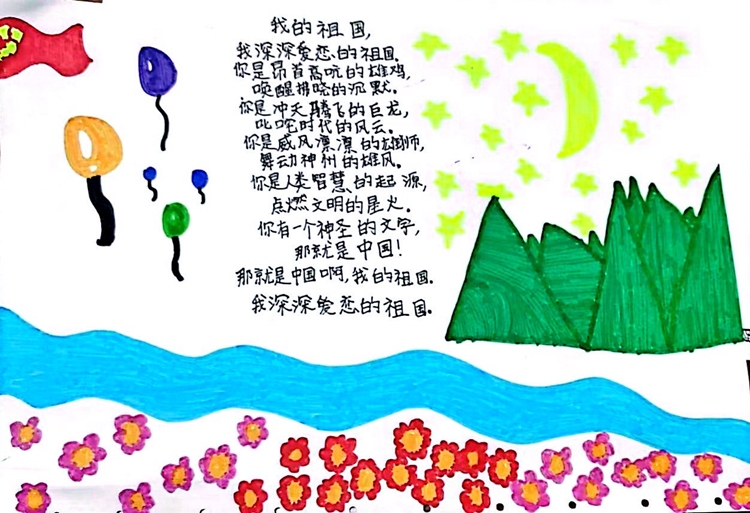 我的祖国,
我深深爱恋的祖国.
你是昂首高吭的雄鸡,
唤醒拂晓的沉默.
你是冲天腾飞的巨龙,
叱咤时代的风云.
你是威风凛凛的雄狮,
舞动神州的雄风.
你是人类智慧的起源,
点燃文明的星火.
你有一个神圣的文字,
那就是中国!
那就是中国啊,我的祖国.
我深深爱恋的祖国.